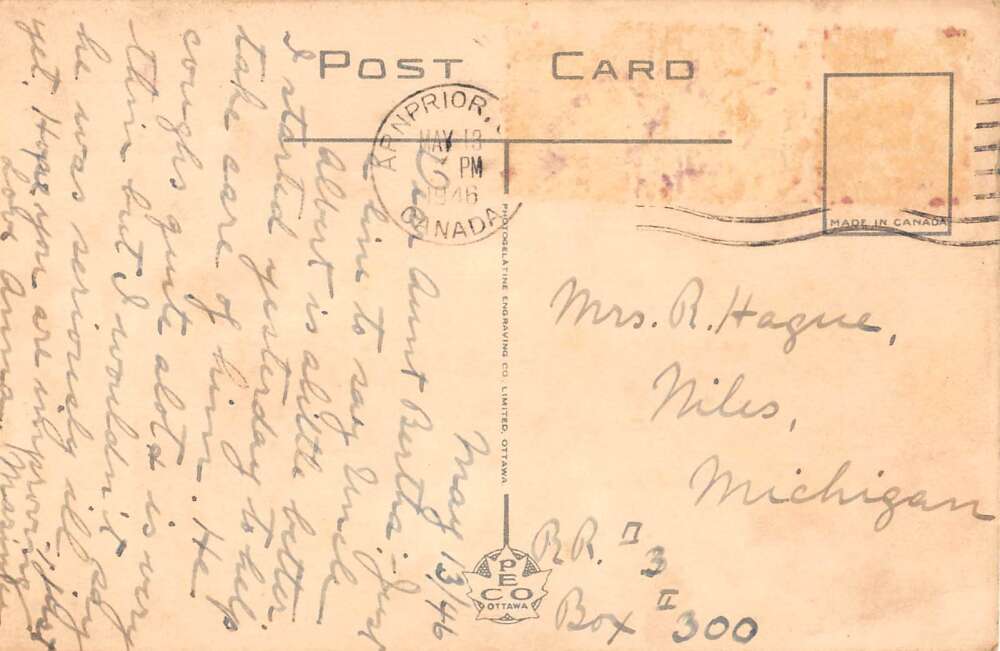 POST CARD
ARNPRIOR,
MAY 13
PM
1946
CANADA
MADE IN CANADA
PHOTOGELATINE ENGRAVING CO. LIMITED, OTTAWA
PECO
OTTAWA
May 13/46
Dear Aunt Bertha - Just
a line to say Uncle
Albert is alittle better.
I started yesterday to help
take care of him. He
coughs quite alot & is very
thin but I wouldn't say
he was seriously ill
yet. Hope you are improving
Love
Mrs. R. Hague,
Niles,
Michigan
RR. 3
Box 300